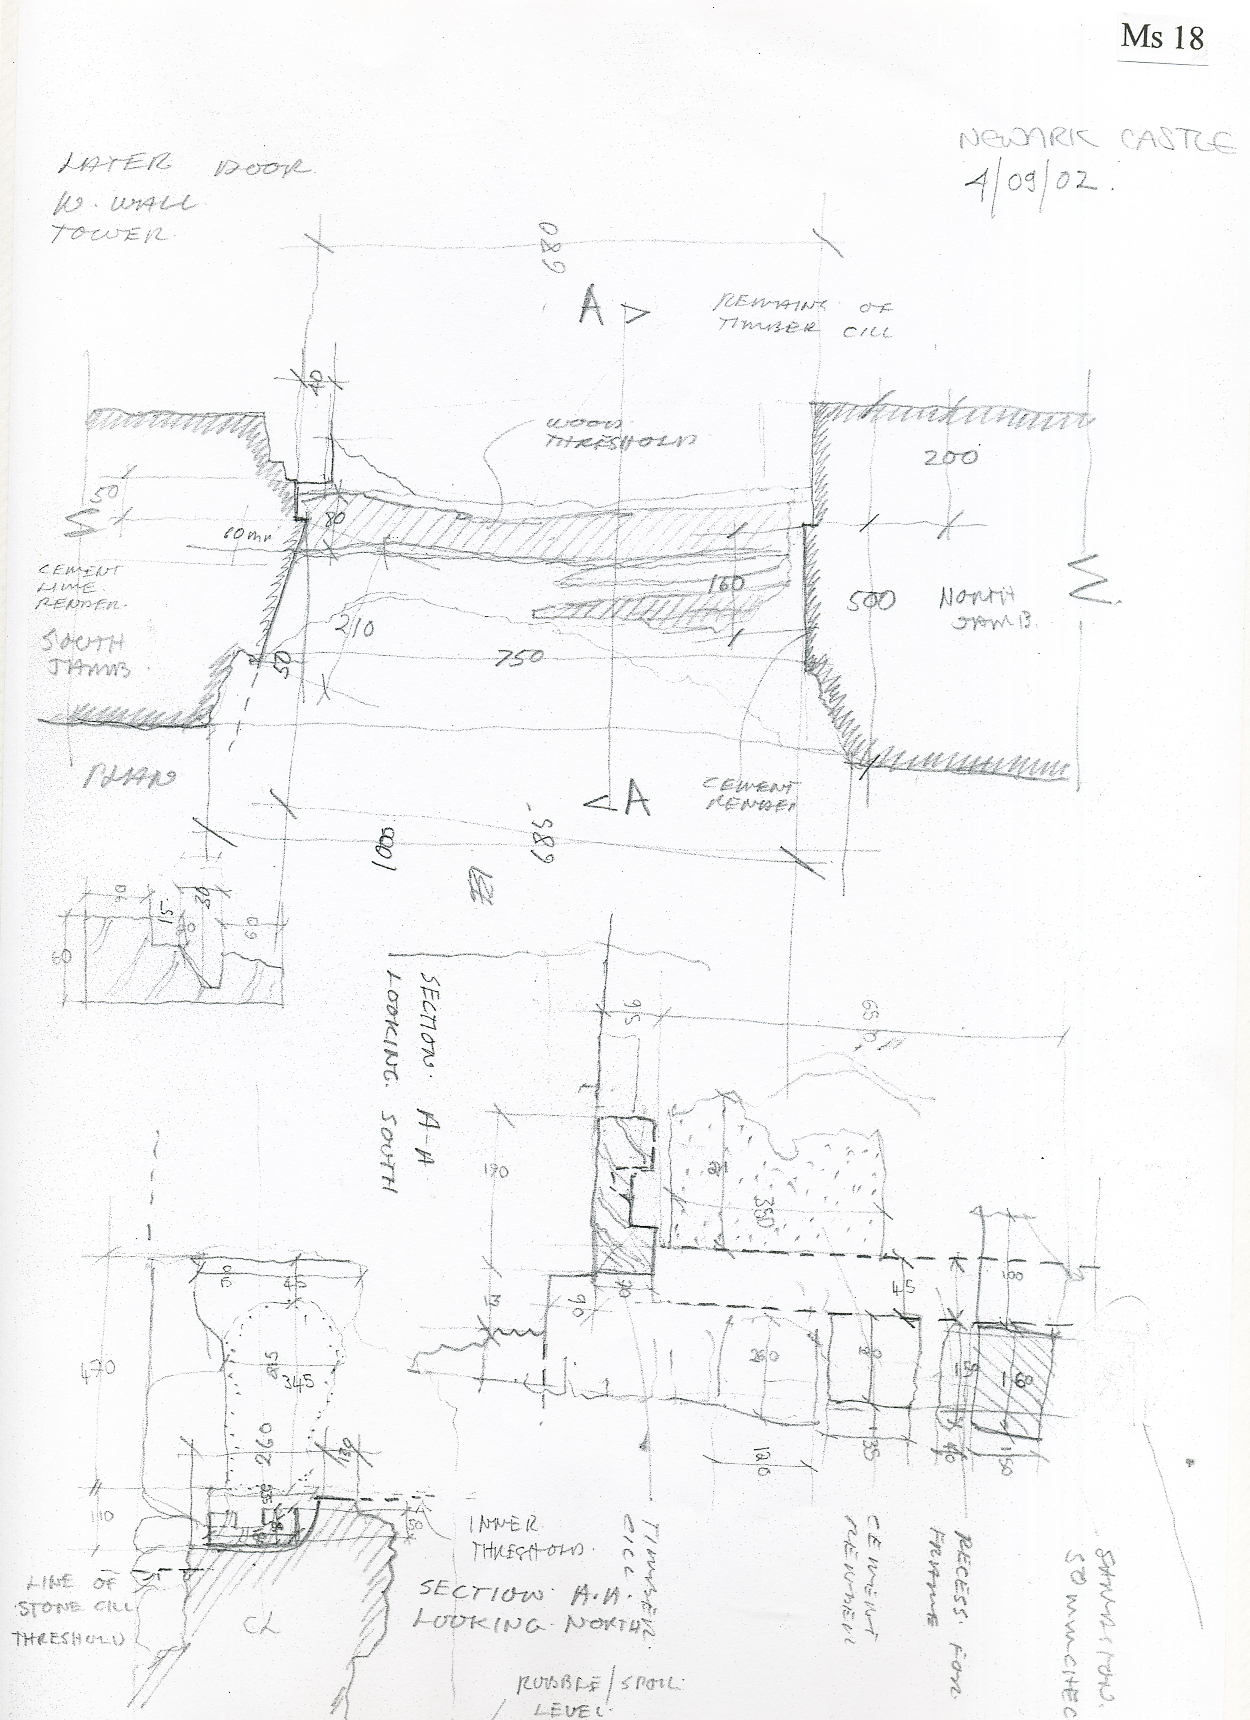 Ms 18
NEWARK CASTLE
4/09/02.
LATER DOOR
W. WALL
TOWER.
680
A
REMAINS OF
TIMBER CILL
40
WOOD
THRESHOLD
200
50
80
60mm
CEMENT
LIME
RENDER.
SOUTH
JAMB.
160
500
NORTH
JAMB.
210
50
750
PLAN
CEMENT
RENDER
A
1000
685
15
30
60
60
SECTION. A-A
LOOKING. SOUTH
95
650
190
350
90
45
50
45
470
345
260
260
130
120
135
150
110
50
INNER
THRESHOLD.
SECTION A.A.
LOOKING. NORTH.
TIMBER.
CILL
CEMENT
RENDER
RECESS. FOR.
FRAME
LINE OF
STONE CILL
THRESHOLD
CL
RUBBLE/SPOIL.
LEVEL.